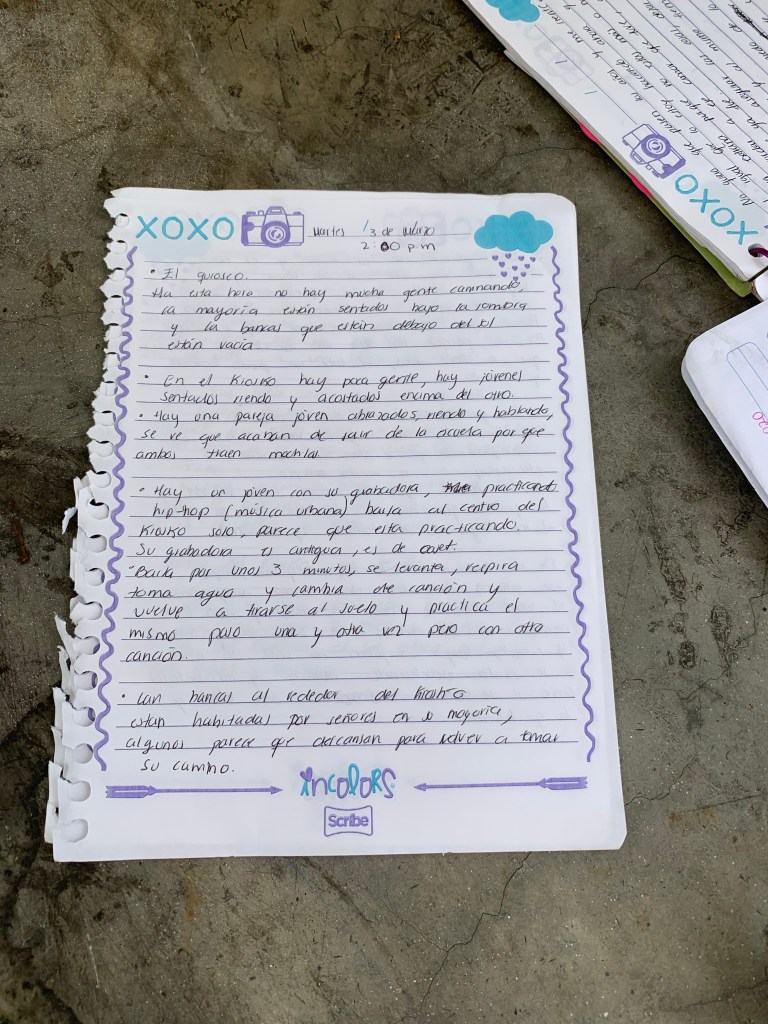 XOXO
Martes 13 de Marzo
2:00 p.m
• El quiosco.
Ha esta hora no hay mucha gente caminando,
la mayoria están sentados bajo la sombra
y la bancas que están debajo del sol
están vacia.
• En el Kiosko hay poca gente, hay jóvenes
sentados riendo y acostados encima del otro.
• Hay una pareja joven abrazados, riendo y hablando,
se ve que acaban de salir de la escuela por que
ambos traen mochilas
• Hay un joven con su grabadora, practicando
hip-hop (música urbana) baila al centro del
Kiosko solo, parece que esta practicando.
Su grabadora es antigua, es de caset.
• Baila por unos 3 minutos, se levanta, respira
toma agua y cambia de canción y
vuelve a tirarse al suelo y practica el
mismo paso una y otra vez pero con otra
canción.
• Lan bancas al rededor del Kiosko
estan habitadas por señores en su mayoría,
algunos parece que descansan para volver a tomar
su camino.
incolors
Scribe
XOXO